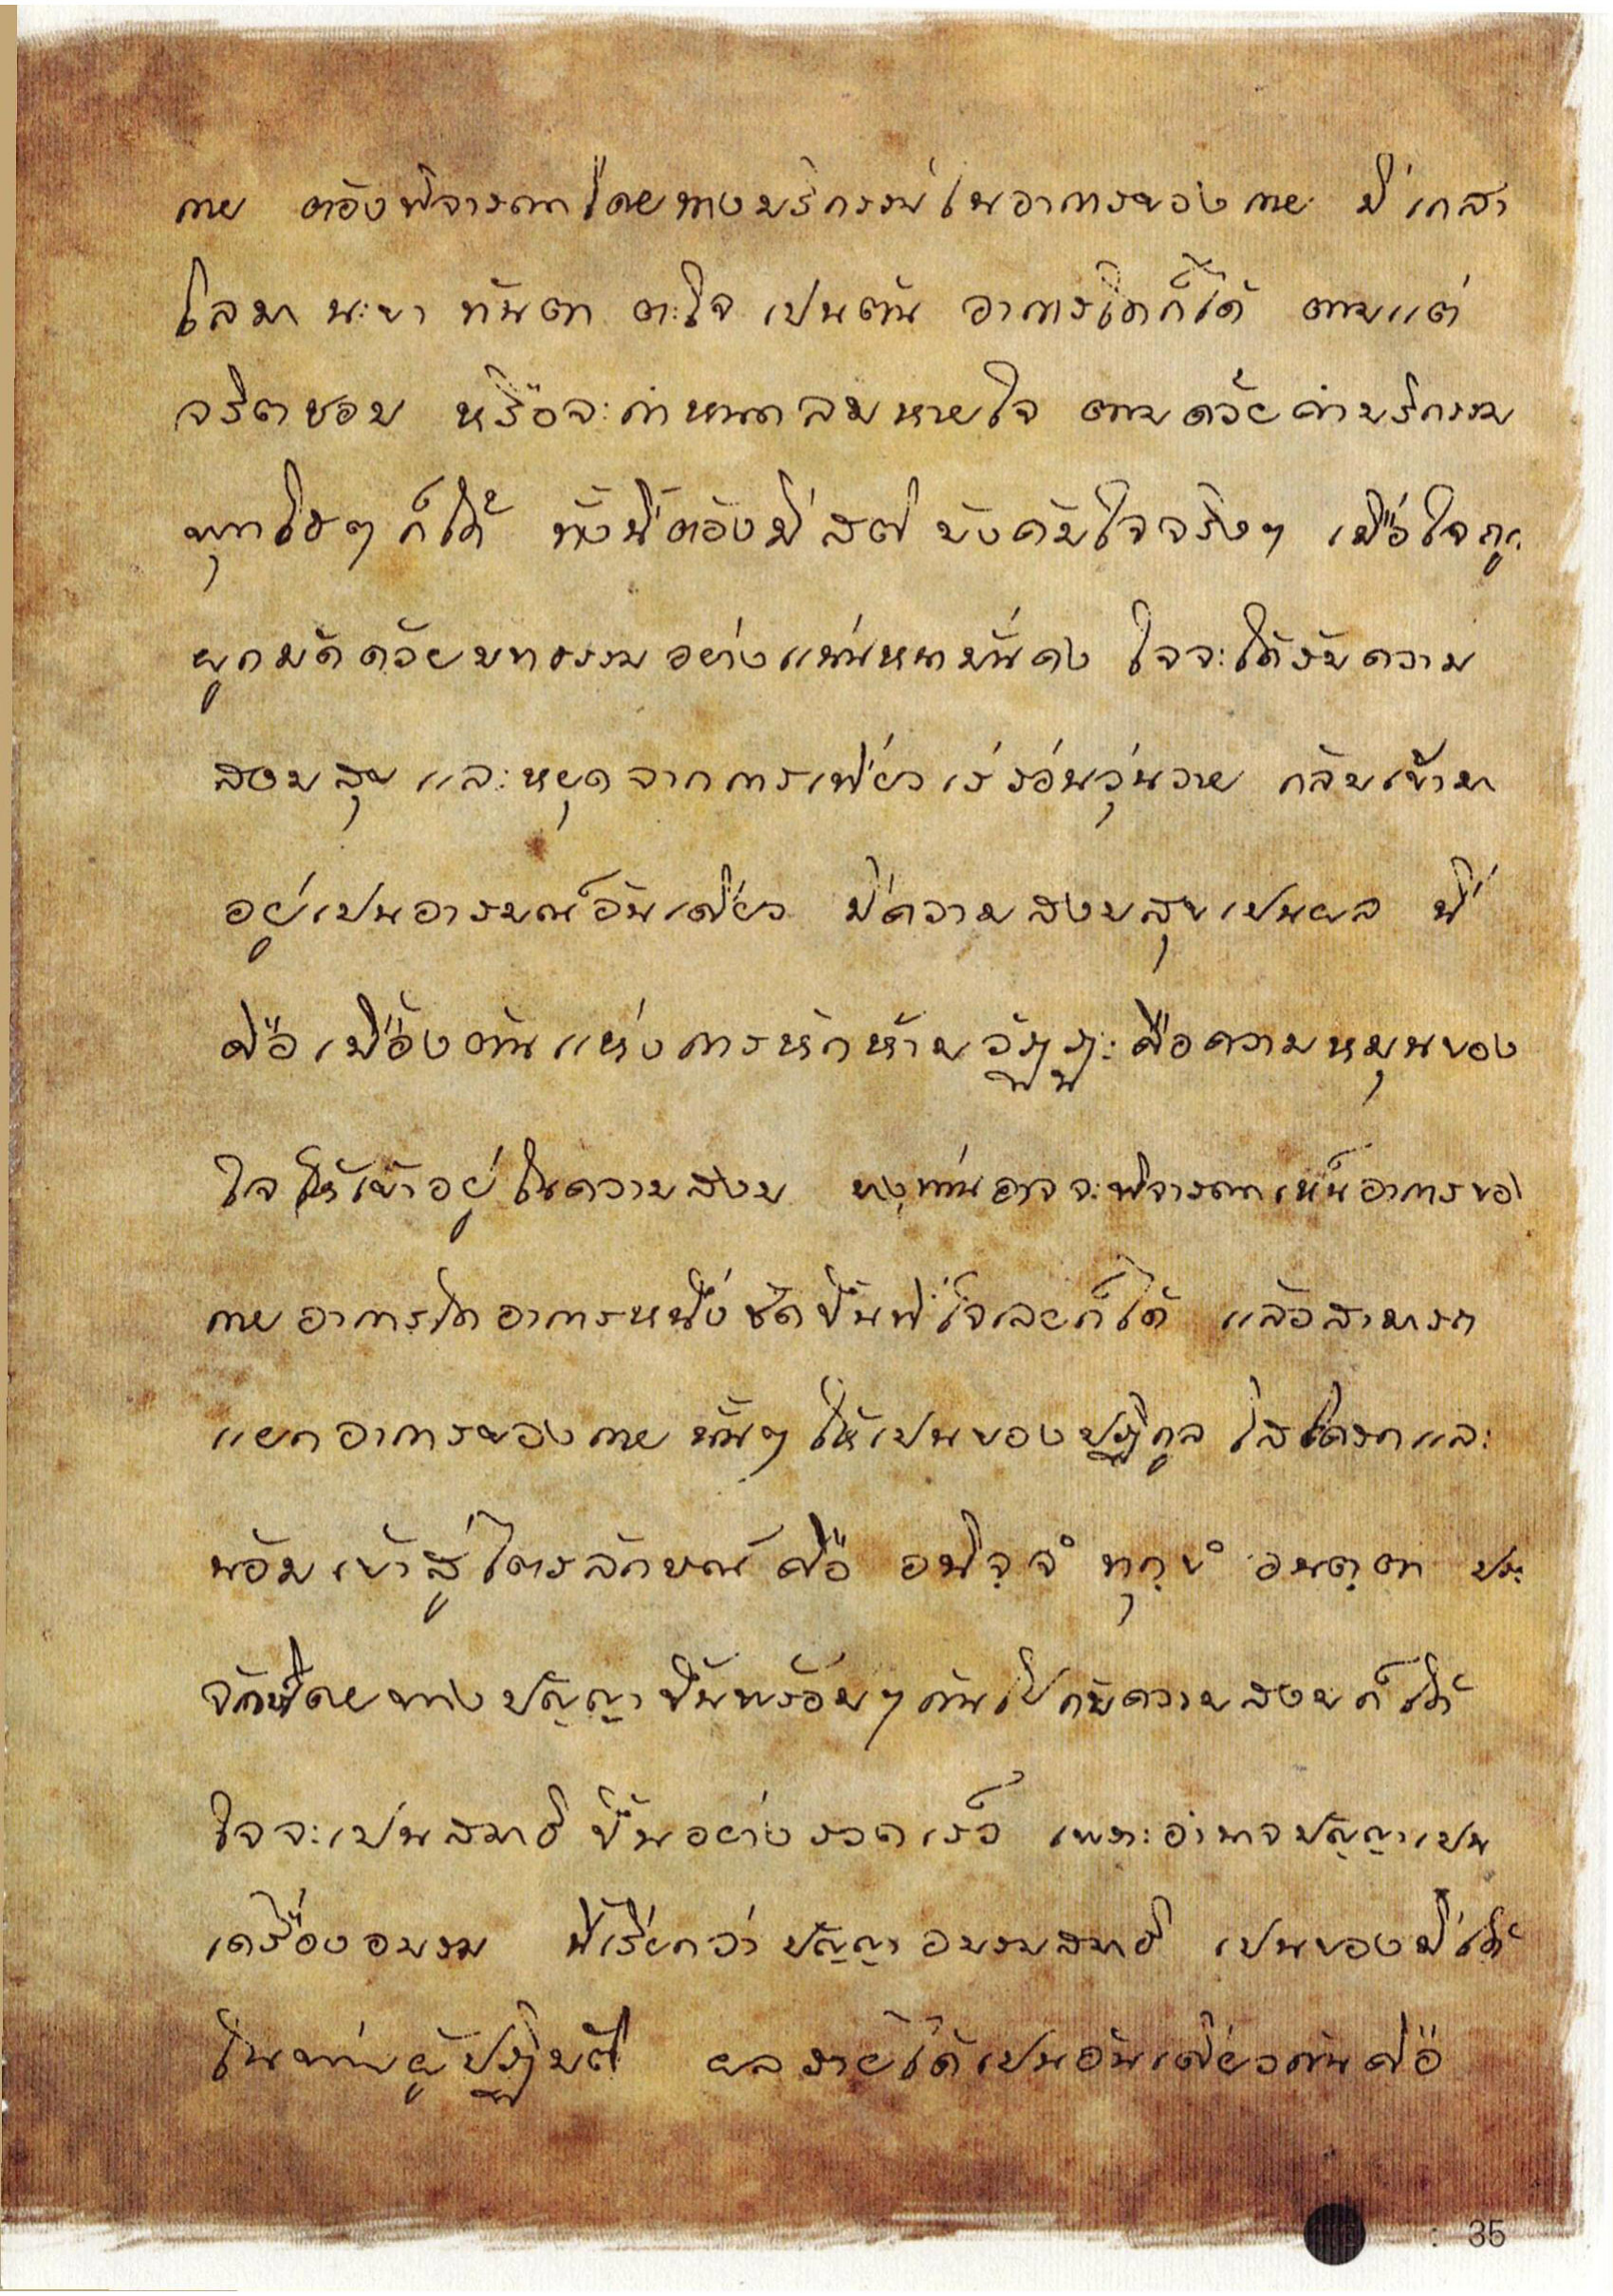 กาย ต้องพิจารณาโดยทางบริกรรมในอาการของกาย มีเกสา
โลมา นะขา ทันตา ตะโจ เปนต้น อาการใดก็ได้ ตามแต่
จริตชอบ หรือจะกำหนดลมหายใจ ตามด้วยคำบริกรรม
พุทโธๆ ก็ได้ ทั้งนี้ต้องมีสติบังคับใจจริงๆ เมื่อใจถูก
ผูกมัดด้วยบทธรรมอย่างแน่นหนามั่นคง ใจจะได้รับความ
สงบสุข และหยุดจากการเที่ยวเร่ร่อนวุ่นวาย กลับเข้ามา
อยู่เปนอารมณ์อันเดียว มีความสงบสุขเปนผล นี่
คือเบื้องต้นแห่งการหักห้ามวัฏฏะคือความหมุนของ
ใจให้เข้าอยู่ในความสงบ บางท่านอาจจะพิจารณาเห็นอาการของ
กายอาการใดอาการหนึ่งชัดขึ้นที่ใจเลยก็ได้ แล้วสามารถ
แยกอาการของกายนั้นๆ ให้เปนของปฏิกูล โสโครกและ
น้อมเข้าสู่ไตรลักษณ์คือ อนิจฺจํ ทุกฺขํ อนตฺตา ประ
จักษ์โดยทางปัญญาขึ้นพร้อมๆกันไปกับความสงบก็ได้
ใจจะเปนสมาธิขึ้นอย่างรวดเร็ว เพราะอำนาจปัญญาเปน
เครื่องอบรม นี้เรียกว่าปัญญาอบรมสมาธิ เปนของมีได้
ในท่านผู้ปฏิบัติ ผลรายได้เปนอันเดียวกันคือ
35